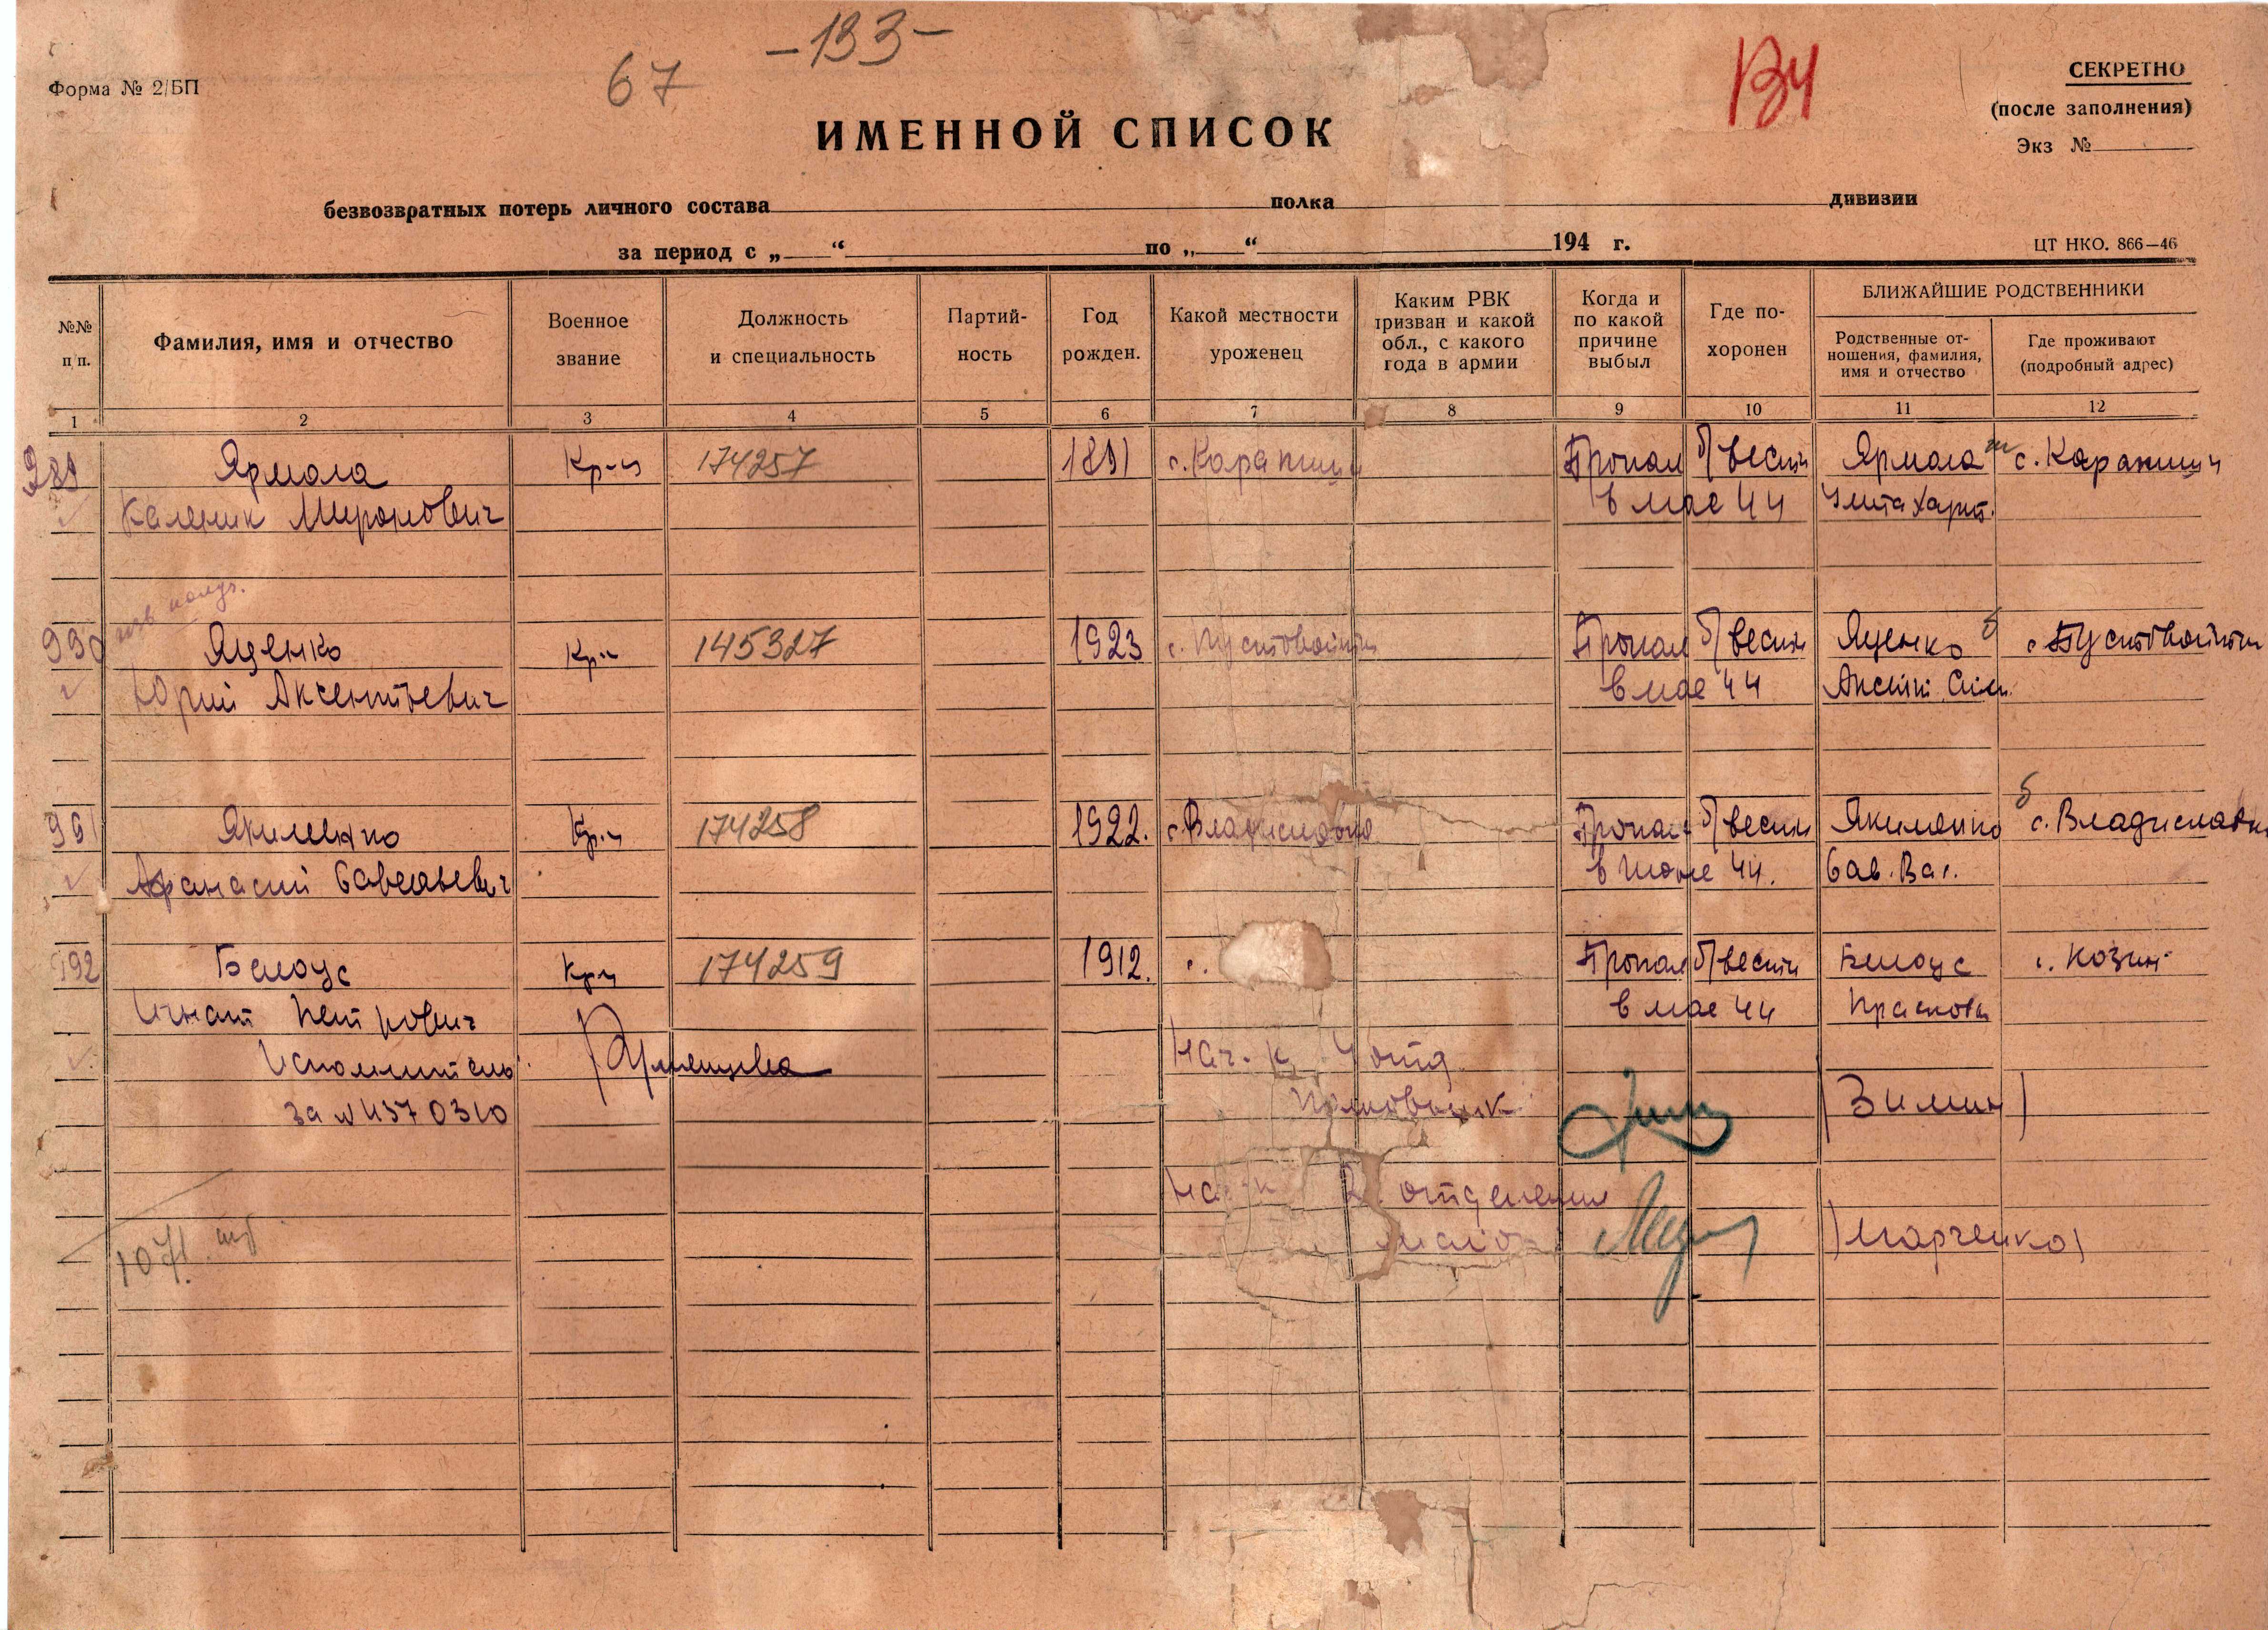 -133-
67
ВЧ
Форма № 2/БП
СЕКРЕТНО
(после заполнения)
Экз №
ИМЕННОЙ СПИСОК
безвозвратных потерь личного состава полка дивизии
за период с „ “ по „ “ 194 г.
ЦТ НКО. 866—46
№№ п/п.
Фамилия, имя и отчество
Военное звание
Должность и специальность
Партий-ность
Год рожден.
Какой местности уроженец
Каким РВК призван и какой обл., с какого года в армии
Когда и по какой причине выбыл
Где по-хоронен
БЛИЖАЙШИЕ РОДСТВЕННИКИ
Родственные от-ношения, фамилия, имя и отчество
Где проживают (подробный адрес)
1 2 3 4 5 6 7 8 9 10 11 12
989 Ярмола Кр-ц 174257 1891 с. Карапиши Пропал б/вести Ярмола с. Карапиши
Каленик Миронович в мае 44
990 Яценко Кр-ц 145327 1923 с. Пустовойты Пропал б/вести Яценко с. Пустовойты
Юрий Аксентьевич в мае 44
991 Якименко Кр-ц 174258 1922. с. Владиславка Пропал б/вести Якименко с. Владиславка
Афанасий Савельевич в июне 44. Сав. Вас.
992 Белоус Кр-ц 174259 1912. с. Пропал б/вести Белоус с. Козин
Игнат Петрович в мае 44 Прасковья
Исполнитель Нач-к 4 отд
за № 0310 Полковник (Зимин)
Нач-к 2 отделения
майор (Марченко)
1071